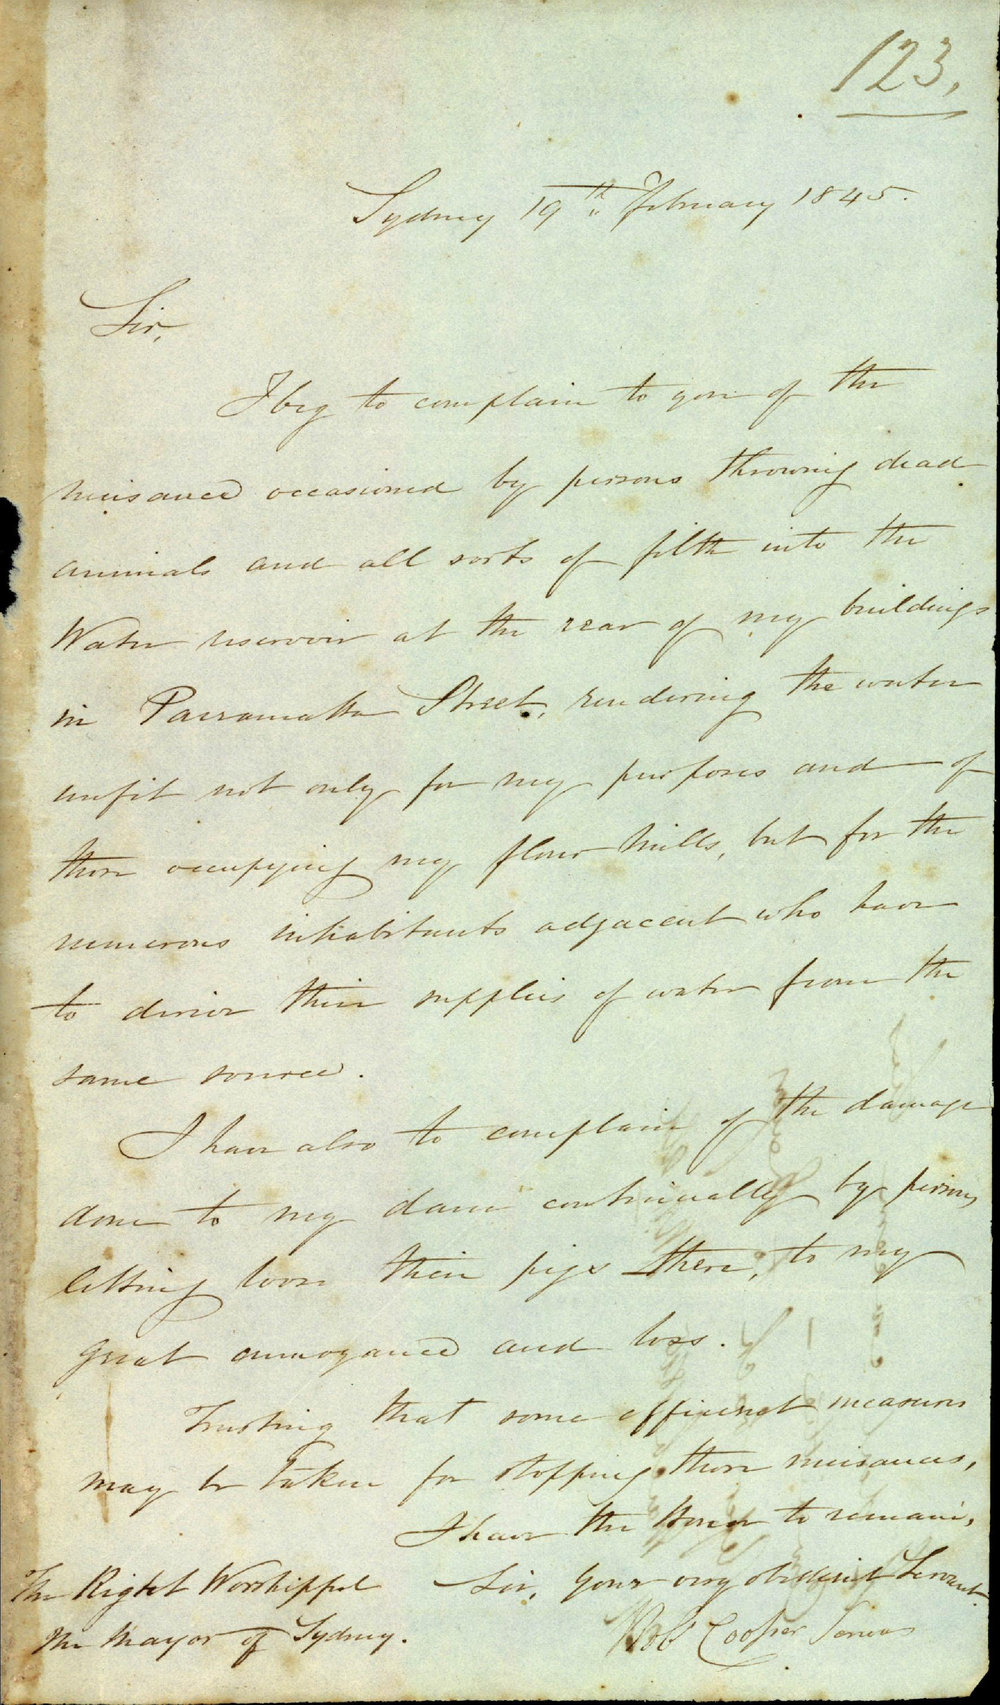 123.
Sydney 19th February 1845.
Sir,
I beg to complain to you of the
nuisance occasioned by persons throwing dead
animals and all sorts of filth into the
Water reservoir at the rear of my buildings
in Parramatta Street, rendering the water
unfit not only for my purposes and of
those occupying my flour Mills, but for the
numerous inhabitants adjacent who have
to derive their supplies of water from the
same source.
I have also to complain of the damage
done to my dam continually by persons
letting loose their pigs there, to my
great annoyance and loss.
Trusting that some efficient measures
may be taken for stopping these nuisances,
I have the Honor to remain,
Sir, your very obedient Servant
Robt Cooper Senior
The Right Worshippl
The Mayor of Sydney.